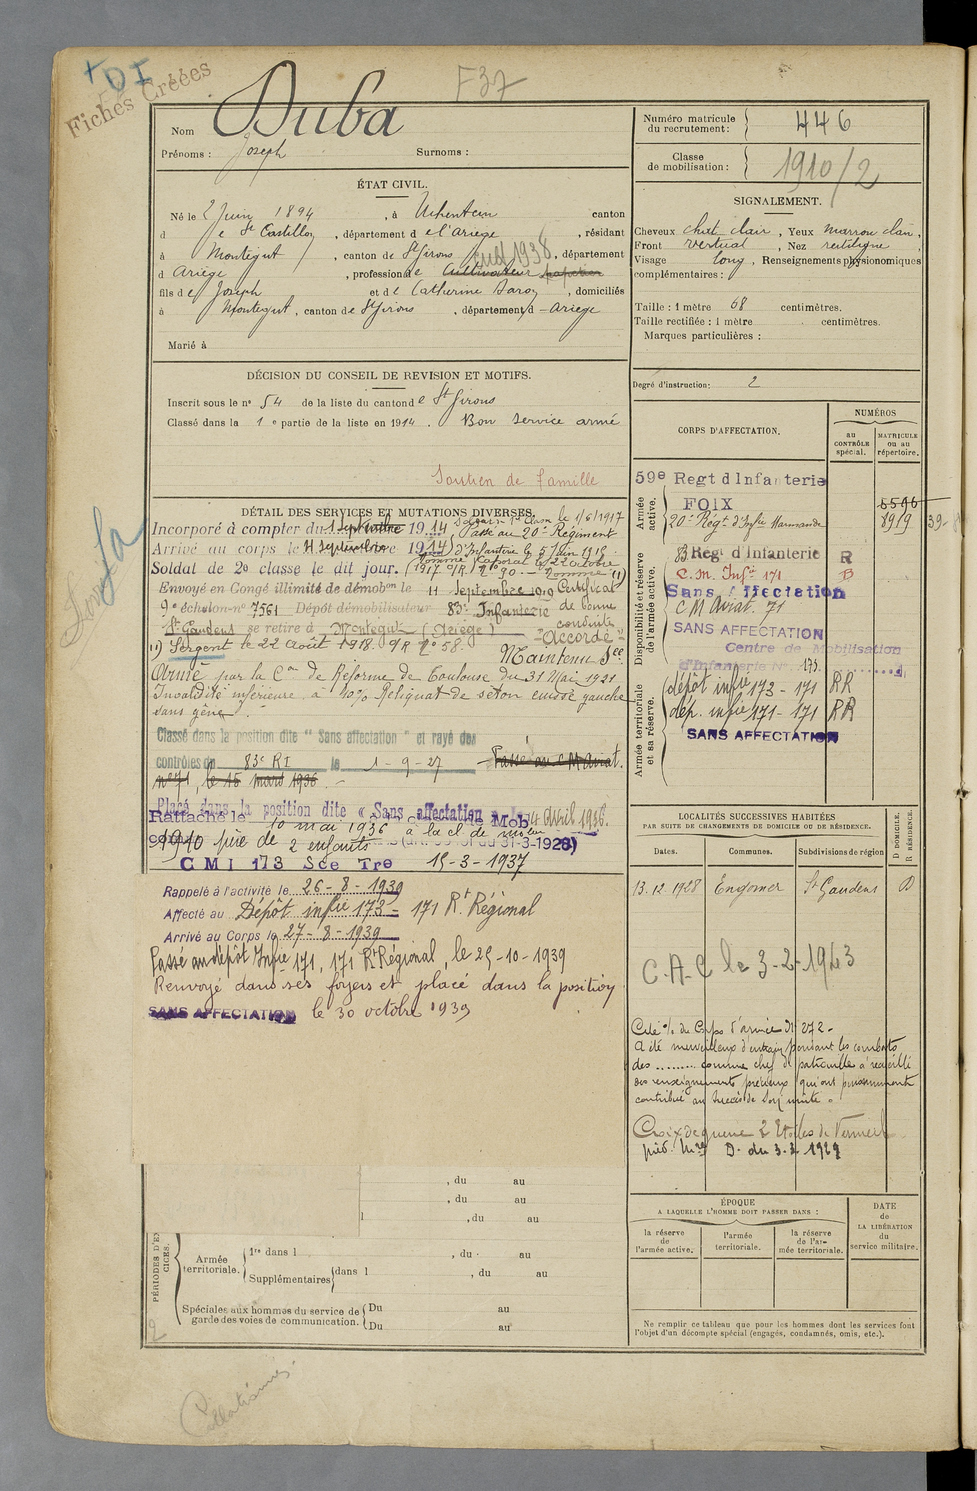 + DI
Fiches Créées
F37
Nom Duba
Prénoms : Joseph Surnoms :
ÉTAT CIVIL.
Né le 2 Juin 1894, à Uchentein canton
de St Castillon, département de l'Ariège, résidant
à Montégut, canton de St Girons, département
d Ariège, profession de Cultivateur
fils de Joseph et de Catherine, domiciliés
à Montégut, canton de St Girons, département d Ariège
Marié à
DÉCISION DU CONSEIL DE REVISION ET MOTIFS.
Inscrit sous le no 54 de la liste du canton de St Girons
Classé dans la 1e partie de la liste en 1914. Bon service armé
Soutien de famille
DÉTAIL DES SERVICES ET MUTATIONS DIVERSES.
Incorporé à compter du 1 septembre 1914
Arrivé au corps le septembre 1914
Soldat de 2e classe le dit jour.
le 1/6/1917
Passé au 20e Régiment
d'Infanterie le 5 Juin 1918
Nommé Caporal le 22 octobre
1917 O/R. No 90 - Nommé (1)
Envoyé en Congé illimité de démob on le 11 Septembre 1919 Certificat
9e échelon no 7561 Dépôt démobilisateur 83e Infanterie de bonne
St Gaudens se retire à Montégut (Ariège) conduite
"Accordé"
(1) Sergent le 22 août 1918. O/R No 58. Maintenu Sce
Armé par la Con de Réforme de Toulouse du 31 Mai 1921
Invalidité inférieure à 10% Reliquat de séton cuisse gauche
sans gêne.
Classé dans la position dite "Sans affectation" et rayé des
contrôles du 83e RI le 1-9-27 Passé au C M Aviat.
no 71, le 15 mars 1936.
Placé dans la position dite « Sans affectation 4 Avril 1936.
Rattaché le 10 mai 1936 à la cl de Mob
1910 père de 2 enfants (du 31-3-1928)
CMI 173 Sce Tre 15-3-1937
Rappelé à l'activité le 26-8-1939
Affecté au Dépôt infie 173 - 171 Rt Régional
Arrivé au Corps le 27-8-1939
Passé au dépôt Infie 171, 171 Rt Régional, le 25-10-1939
Renvoyé dans ses foyers et placé dans la position
SANS AFFECTATION le 30 octobre 1939
, du au
, du au
, du au
PÉRIODES D'EX
CICES.
Armée territoriale.
1re dans 1 , du au
Supplémentaires dans 1 , du au
Spéciales aux hommes du service de garde des voies de communication.
Du au
Du au
Numéro matricule du recrutement : 446
Classe de mobilisation : 1910/2
SIGNALEMENT.
Cheveux chat clair, Yeux marron clair,
Front vertical, Nez rectiligne,
Visage long, Renseignements physionomiques
complémentaires :
Taille : 1 mètre 68 centimètres.
Taille rectifiée : 1 mètre centimètres.
Marques particulières :
Degré d'instruction : 2
CORPS D'AFFECTATION.
NUMÉROS
au CONTRÔLE spécial.
MATRICULE ou au répertoire.
Armée active.
59e Regt d'Infanterie
FOIX 5596
20e Régt d'Infie Marmande 8919 39-
Disponibilité et réserve de l'armée active.
83 Régt d'Infanterie R
C. M. Infie 171
Sans Affectation
C M Aviat. 71
SANS AFFECTATION
Centre de Mobilisation
d'Infanterie No 173
Armée territoriale et sa réserve.
dépôt infie 173 - 171 RR
dép. infie 171 - 171 RR
SANS AFFECTATION
LOCALITÉS SUCCESSIVES HABITÉES
PAR SUITE DE CHANGEMENTS DE DOMICILE OU DE RÉSIDENCE.
D DOMICILE.
R RÉSIDENCE.
Dates. Communes. Subdivisions de région
13.12.1928 Engomer St Gaudens D
C.A.C le 3-2-1943
Cité % du Corps d'armée No 272 -
A été merveilleux d'entrain pendant les combats
des ........ comme chef de patrouilles a recueilli
des renseignements précieux qui ont puissamment
contribué au succès de son unité.
Croix de guerre 2 Etoiles de Vermeil
ÉPOQUE
A LAQUELLE L'HOMME DOIT PASSER DANS :
la réserve de l'armée active.
l'armée territoriale.
la réserve de l'armée territoriale.
DATE de LA LIBÉRATION du service militaire.
Ne remplir ce tableau que pour les hommes dont les services font
l'objet d'un décompte spécial (engagés, condamnés, omis, etc.).